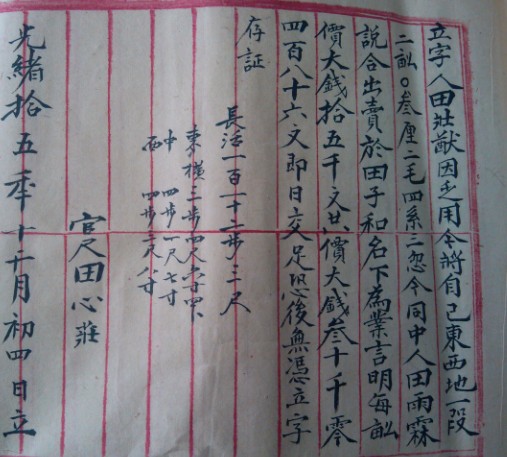 立字人田壯猷因乏用今將自己東西地一段
二畝〇叁厘二毛四系三忽今同中人田雨霖
說合出賣於田子和名下為業言明每畝
價大錢拾五千文共價大錢叁十千零
四百八十六文即日交足恐後無憑立字
存証
長活一百一十二步二尺
東橫三步四尺六寸四下
中 四步一尺七寸
西 四步二尺八寸
官尺田心莊
光緒拾五年十一月初四日立